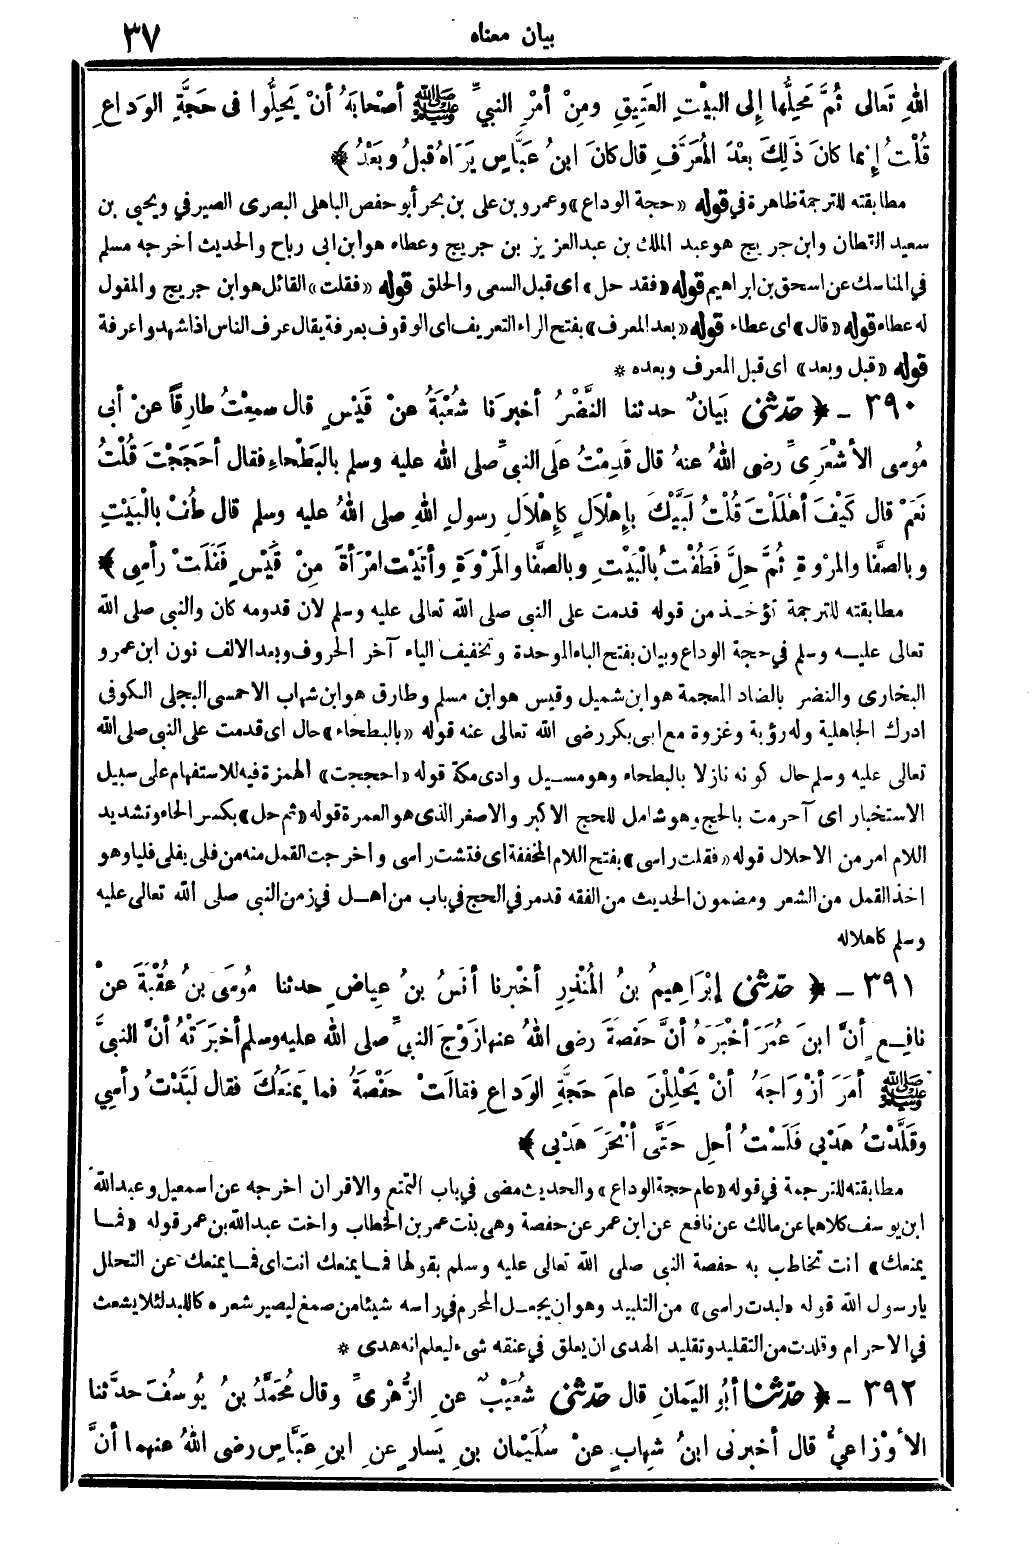 بيان معناه ٣٧
اللهِ تَعالى ثُمَّ مَحِلُّها إِلى البيْتِ العَتِيقِ ومِنْ أمْرِ النبيِّ ﷺ أصْحابَهُ أنْ يَحِلُّوا فى حَجَّةِ الوَدَاعِ
قُلْتُ إنما كانَ ذَلِكَ بعْدَ المُعَرَّفِ قال كانَ ابنُ عَبَّاسٍ يَرَاهُ قبلُ وبَعْدُ ﴾
مطابقته للترجمة ظاهرة في قوله «حجة الوداع» وعمرو بن على بن بحر أبو حفص الباهلى البصرى الصيرفي ويحيى بن
سعيد القطان وابن جريج هو عبد الملك بن عبد العزيز بن جريج وعطاء هو ابن ابى رباح والحديث أخرجه مسلم
في المناسك عن اسحق بن ابراهيم قوله «فقد حل» اى قبل السعى والحلق قوله «فقلت» القائل هو ابن جريج والمقول
له عطاء قوله «قال» اى عطاء قوله «بعد المعرف» بفتح الراء التعريف اى الوقوف بعرفة يقال عرف الناس اذا شهدوا عرفة
قوله «قبل وبعد» اى قبل المعرف وبعده *
٣٩٠ ـ ﴿ حدّثنى بَيانٌ حدثنا النَّضْرُ أخبرَنا شُعْبَةُ عنْ قَيْسٍ قال سمِعْتُ طارِقاً عنْ أبى
مُوسى الأشْعَرِىِّ رضى اللهُ عنهُ قال قَدِمْتُ عَلَى النبىِّ صلى الله عليه وسلم بالبَطْحاءِ فقال أحَجَجْتَ قُلْتُ
نَعَمْ قال كَيْفَ أهْلَلْتَ قُلْتُ لَبَّيْكَ بإهْلَالٍ كإهْلَالِ رسولِ اللهِ صلى اللهُ عليه وسلم قال طُفْ بالْبَيْتِ
وبالصَّفا والمرْوةِ ثُمَّ حِلَّ فَطُفْتُ بالْبَيْتِ وبالصفَّا والمَرْوَةِ وأتَيْتُ امْرَأةً مِنْ قَيْسٍ فَفَلَتْ رأسِى ﴾
مطابقته للترجمة تؤخذ من قوله قدمت على النبى صلى الله تعالى عليه وسلم لان قدومه كان والنبى صلى الله
تعالى عليه وسلم في حجة الوداع وبيان بفتح الباء الموحدة وتخفيف الياء آخر الحروف وبعد الالف نون ابن عمرو
البخارى والنضر بالضاد المعجمة هو ابن شميل وقيس هو ابن مسلم وطارق هو ابن شهاب الاحمسى البجلى الكوفى
ادرك الجاهلية وله رؤية وغزوة مع ابى بكر رضى الله تعالى عنه قوله «بالبطحاء» حال اى قدمت على النبى صلى الله
تعالى عليه وسلم حال كونه نازلا بالبطحاء وهو مسيل وادى مكة قوله «احججت» الهمزة فيه للاستفهام على سبيل
الاستخبار اى آحرمت بالحج وهو شامل للحج الاكبر والاصغر الذى هو العمرة قوله «ثم حل» بكسر الحاء وتشديد
اللام امر من الاحلال قوله «فقلت راسى» بفتح اللام المخففة اى فتشت راسى واخرجت القمل منه من فلى يفلى فليا وهو
اخذ القمل من الشعر ومضمون الحديث من الفقه قد مر في الحج في باب من اهل في زمن النبى صلى الله تعالى عليه
وسلم كاهلاله
٣٩١ ـ ﴿ حدّثنى إبْرَاهِيمُ بنُ المُنْذِرِ أخْبرنا أنَسُ بنُ عِياضٍ حدثنا مُوسَى بنُ عُقْبَةَ عنْ
نافِعٍ أنَّ ابنَ عُمَرَ أخْبَرَهُ أنَّ حَفصَةَ رضى اللهُ عنها زَوْجَ النبىِّ صلى الله عليه وسلم أخبَرَتْهُ أنَّ النبىَّ
ﷺ أمَرَ أزْوَاجَهُ أنْ يَحْلِلْنَ عامَ حَجَّةِ الوَدَاعِ فقالَتْ حَفْصَةُ فما يَمنَعُكَ فقال لَبَّدْتُ رأسِي
وقَلَّدْتُ هَدْيِى فَلَسْتُ أحِل حَتَّى أنْحَرَ هَدْيِى ﴾
مطابقته للترجمة في قوله «عام حجة الوداع» والحديث مضى في باب التمتع والاقران اخرجه عن اسمعيل وعبد الله
ابن يوسف كلاهما عن مالك عن نافع عن ابن عمر عن حفصة وهى بنت عمر بن الخطاب واخت عبد الله بن عمر قوله «فما
يمنعك» انت تخاطب به حفصة النبى صلى الله تعالى عليه وسلم بقولها فما يمنعك انت اى فما يمنعك عن التحلل
يارسول الله قوله «لبدت راسى» من التلبيد وهو ان يجعل المحرم في راسه شيئا من صمغ ليصير شعره كاللبد لئلا يشعث
في الاحرام وقلدت من التقليد وتقليد الهدى ان يعلق في عنقه شىء ليعلم انه هدى *
٣٩٢ ـ ﴿ حدّثنا أبُو اليَمانِ قال حدّثنى شُعَيْبٌ عنِ الزُّهْرِىِّ وقال مُحَمَّدُ بنُ يُوسُفَ حدَّثنا
الأوْزاعِيُّ قال أخبرنى ابنُ شِهابٍ عنْ سُلَيْمان بنِ يَسارٍ عنِ ابنِ عَبَّاسٍ رضى اللهُ عنهما أنَّ